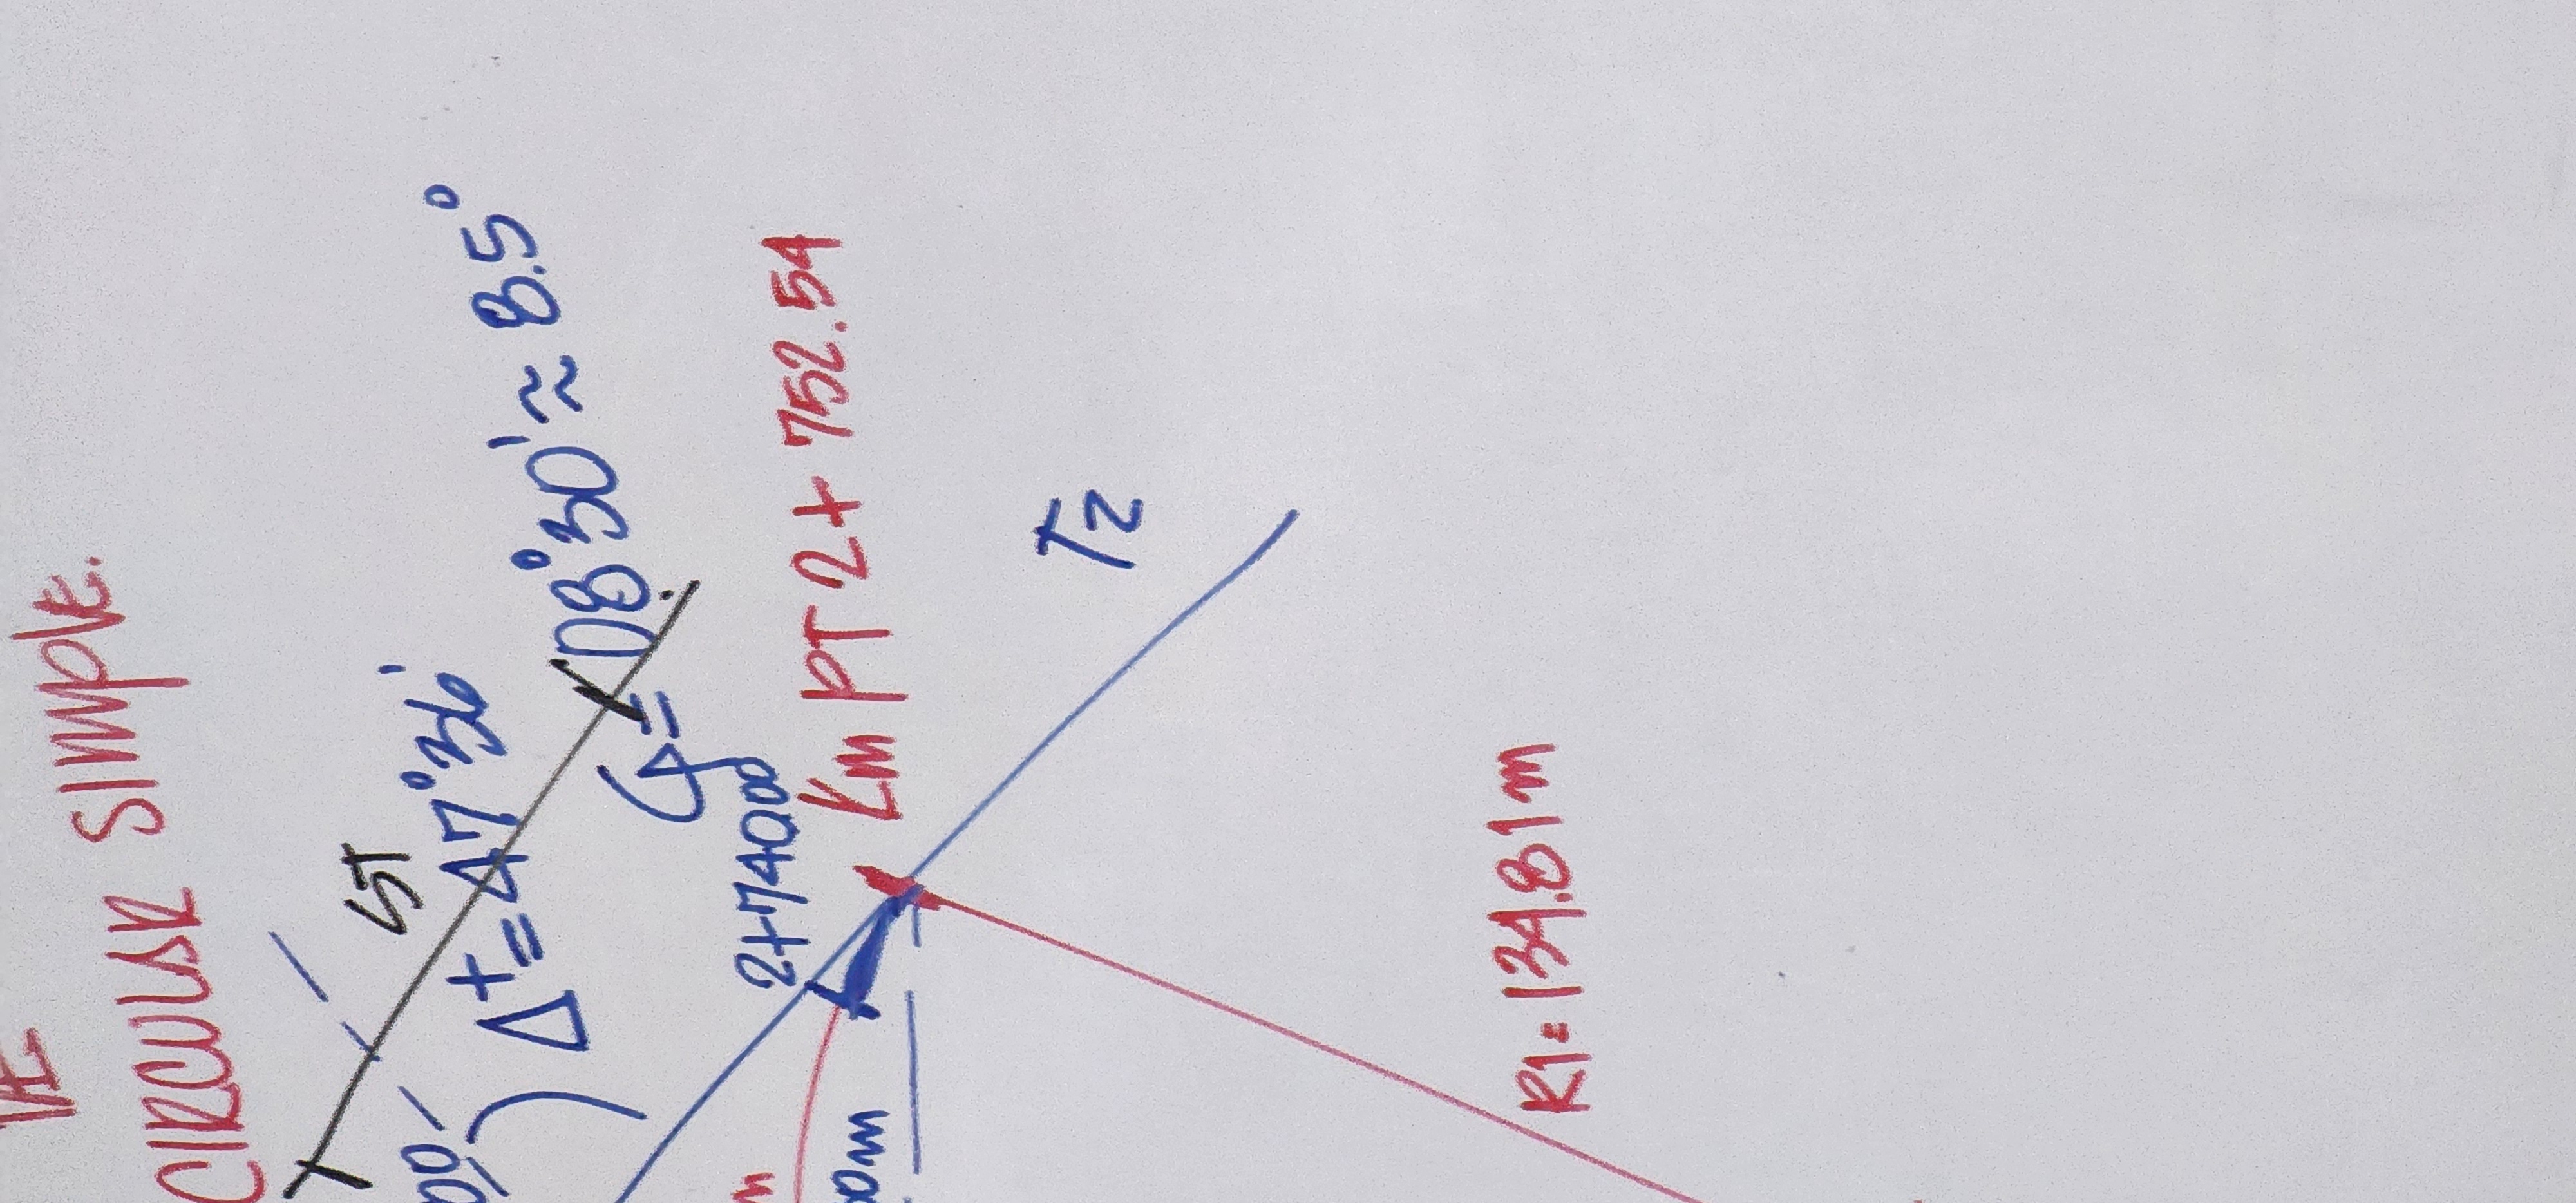 DE
CIRCULAR SIMPLE.
ST
00
Δ+ = 47°36'
G = 08°30' ≈ 8.5°
2+740.00
m
Km PT 2+752.54
0m
T2
R1=134.81m